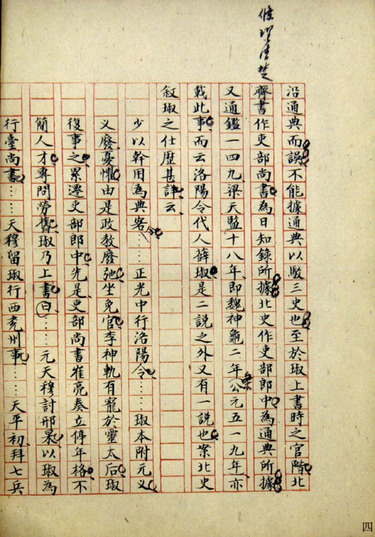 沿通典而誤不能據通典以駁三史也至於琡上書時之官階北
齊書作吏部尚書為日知錄所據北史作吏部郎中為通典所據
又通鑑一四九梁天監十八年即魏神龜二年公元五一九年亦
載此事而云洛陽令代人薛琡是二說之外又有一說也案北史
敘琡之仕歷甚詳云
少以幹用為典客令……正光中行洛陽令……琡本附元乂
乂廢憂懼由是政教廢弛坐免官李神軌有寵於靈太后琡
復事之累遷吏部郎中先是吏部尚書崔亮奏立停年格不
簡人才專問勞舊琡乃上書曰……元天穆討邢杲以琡為
行臺尚書……天穆留琡行西兗州事……天平初拜七兵
四